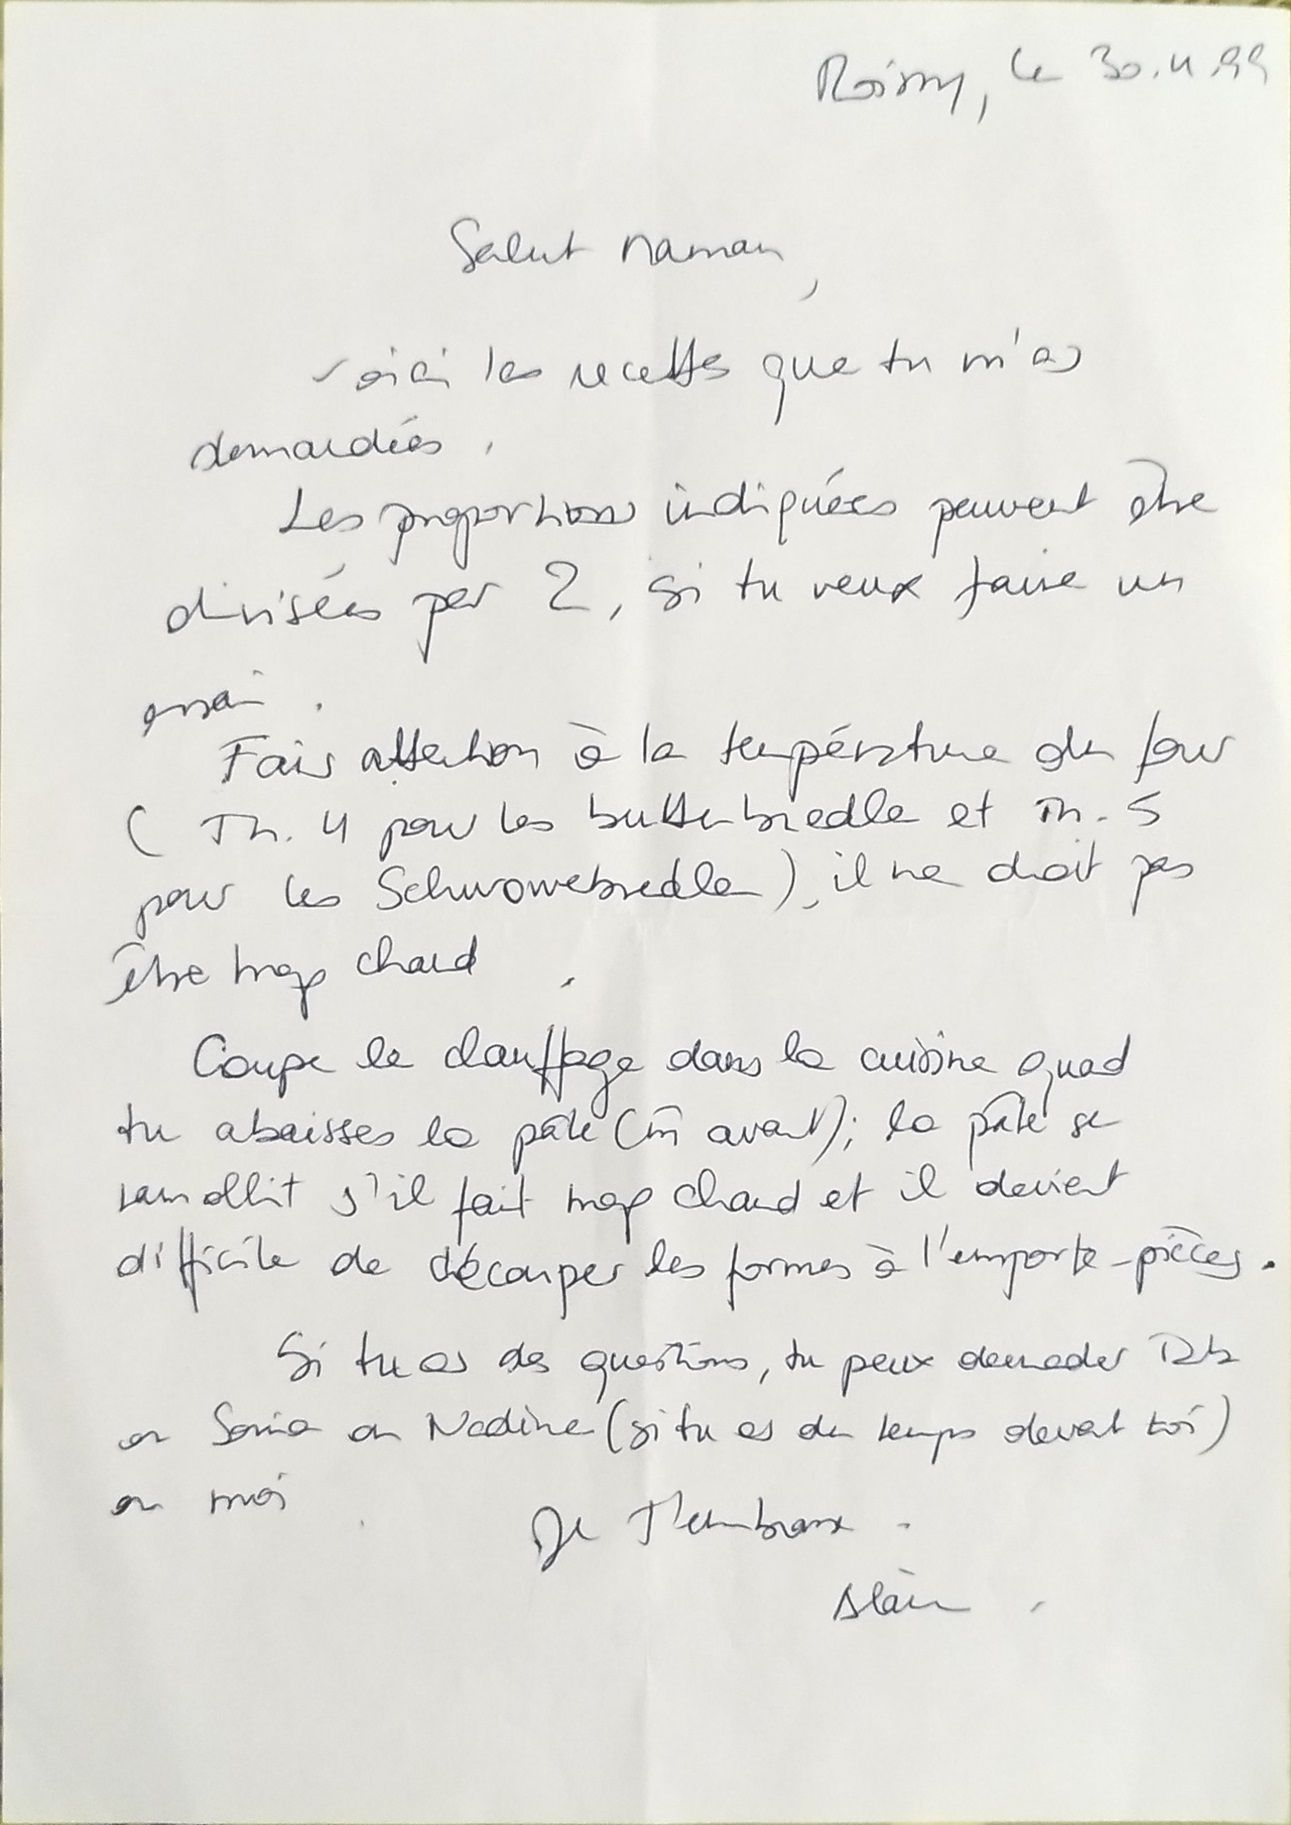 Roissy, le 30.11.99
Salut Maman,
voici les recettes que tu m'as
demandées.
Les proportions indiquées peuvent être
divisées par 2, si tu veux faire un
essai.
Fais attention à la température du four
( Th. 4 pour les butterbredle et Th. 5
pour les Schwowebredle), il ne doit pas
être trop chaud.
Coupe le chauffage dans la cuisine quad
tu abaisses la pâte (m̄ avant); la pâte se
ramollit s'il fait trop chaud et il devient
difficile de découper les formes à l'emporte-pièces.
Si tu as des questions, tu peux demander
ou Sonia ou Nadine (si tu as du temps devant toi)
ou moi.
Je t'embrasse.
Alain.